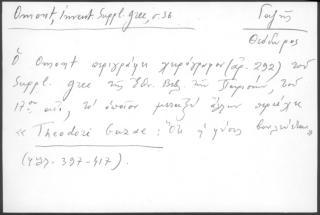 Omont, invent. Suppl. grec, σ. 36
Γαζῆς
Θεόδωρος
Ὁ Omont περιγράφει χειρόγραφον (ἀρ. 292) τοῦ
Suppl. grec τῆς Ἐθν. Βιβ. τῶν Παρισίων, τοῦ
17ου αἰῶ, τὸ ὁποῖον μεταξὺ ἄλλων περιέχει
« Theodori Gazae : Ὅτι ἡ φύσις βουλεύεται »
(φφ. 397-417).